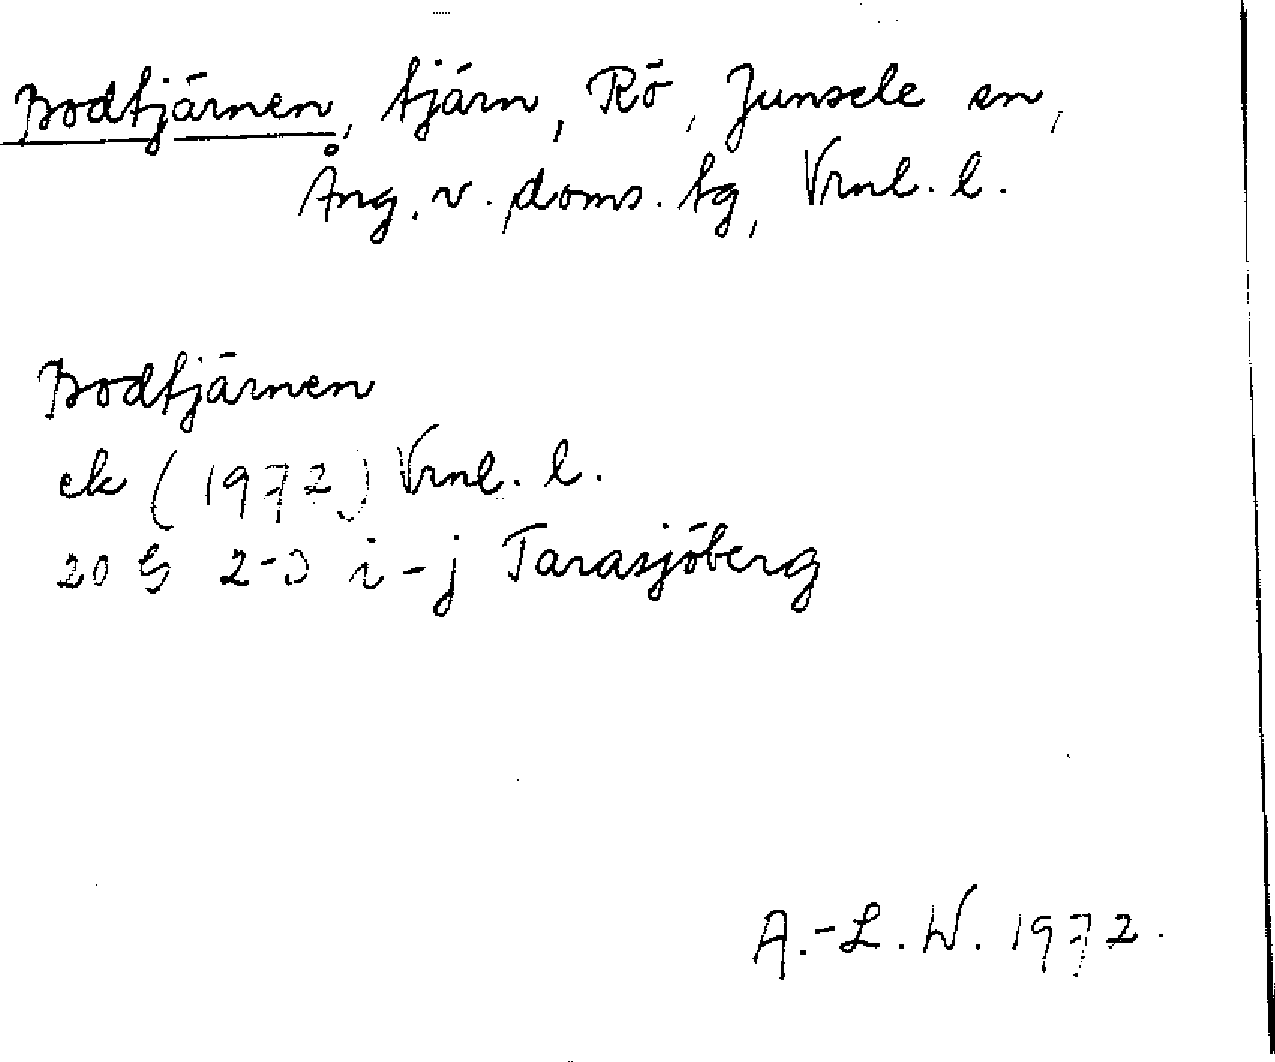 Bodtjärnen, tjärn, Rö, Junsele sn,
Ång. v. doms. tg, Vrnl. l.
Bodtjärnen
ek (1972) Vrnl. l.
20 G 2-3 i-j Tarasjöberg
A.-L. W. 1972.